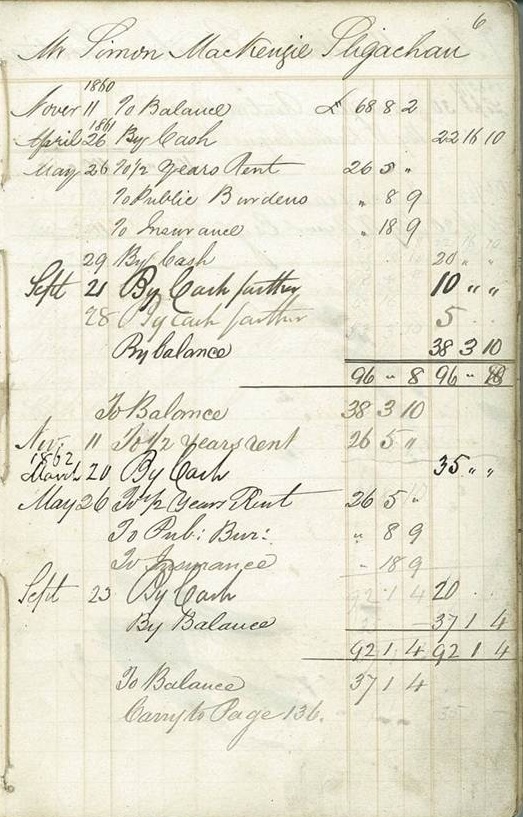 6
Mr Simon MacKenzie Sligachan
1860
Nover 11 To Balance £ 68 8 2
1861
April 26 By Cash 22 16 10
May 26 To 1/2 Years Rent 26 5 "
To Public Burdens " 8 9
To Insurance " 18 9
29 By Cash 20 " "
Sept 21 By Cash further 10 " "
28 By Cash further 5
By balance 38 3 10
96 " 8 96 "
To Balance 38 3 10
Nov. 11 To 1/2 years rent 26 5 "
1862
March 20 By Cash 35 " "
May 26 To 1/2 Years Rent 26 5 "
To Pub: Bur: " 8 9
To Insurance - 18 9
Sept 23 By Cash 92 1 4 20
By Balance 37 1 4
92 1 4 92 1 4
To Balance 37 1 4
Carry to Page 136.